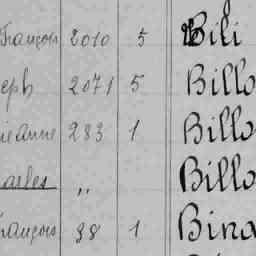 François 2010 5 Bili
eph 2071 5 Billo
ieanne 283 1 Billo
arles " Billo
rançois 38 1 Bina